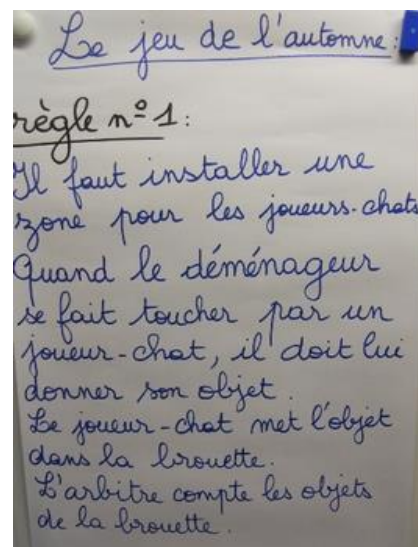 Le jeu de l'automne:
règle n° 1:
Il faut installer une
zone pour les joueurs-chats
Quand le déménageur
se fait toucher par un
joueur-chat, il doit lui
donner son objet.
Le joueur-chat met l'objet
dans la brouette.
L'arbitre compte les objets
de la brouette.